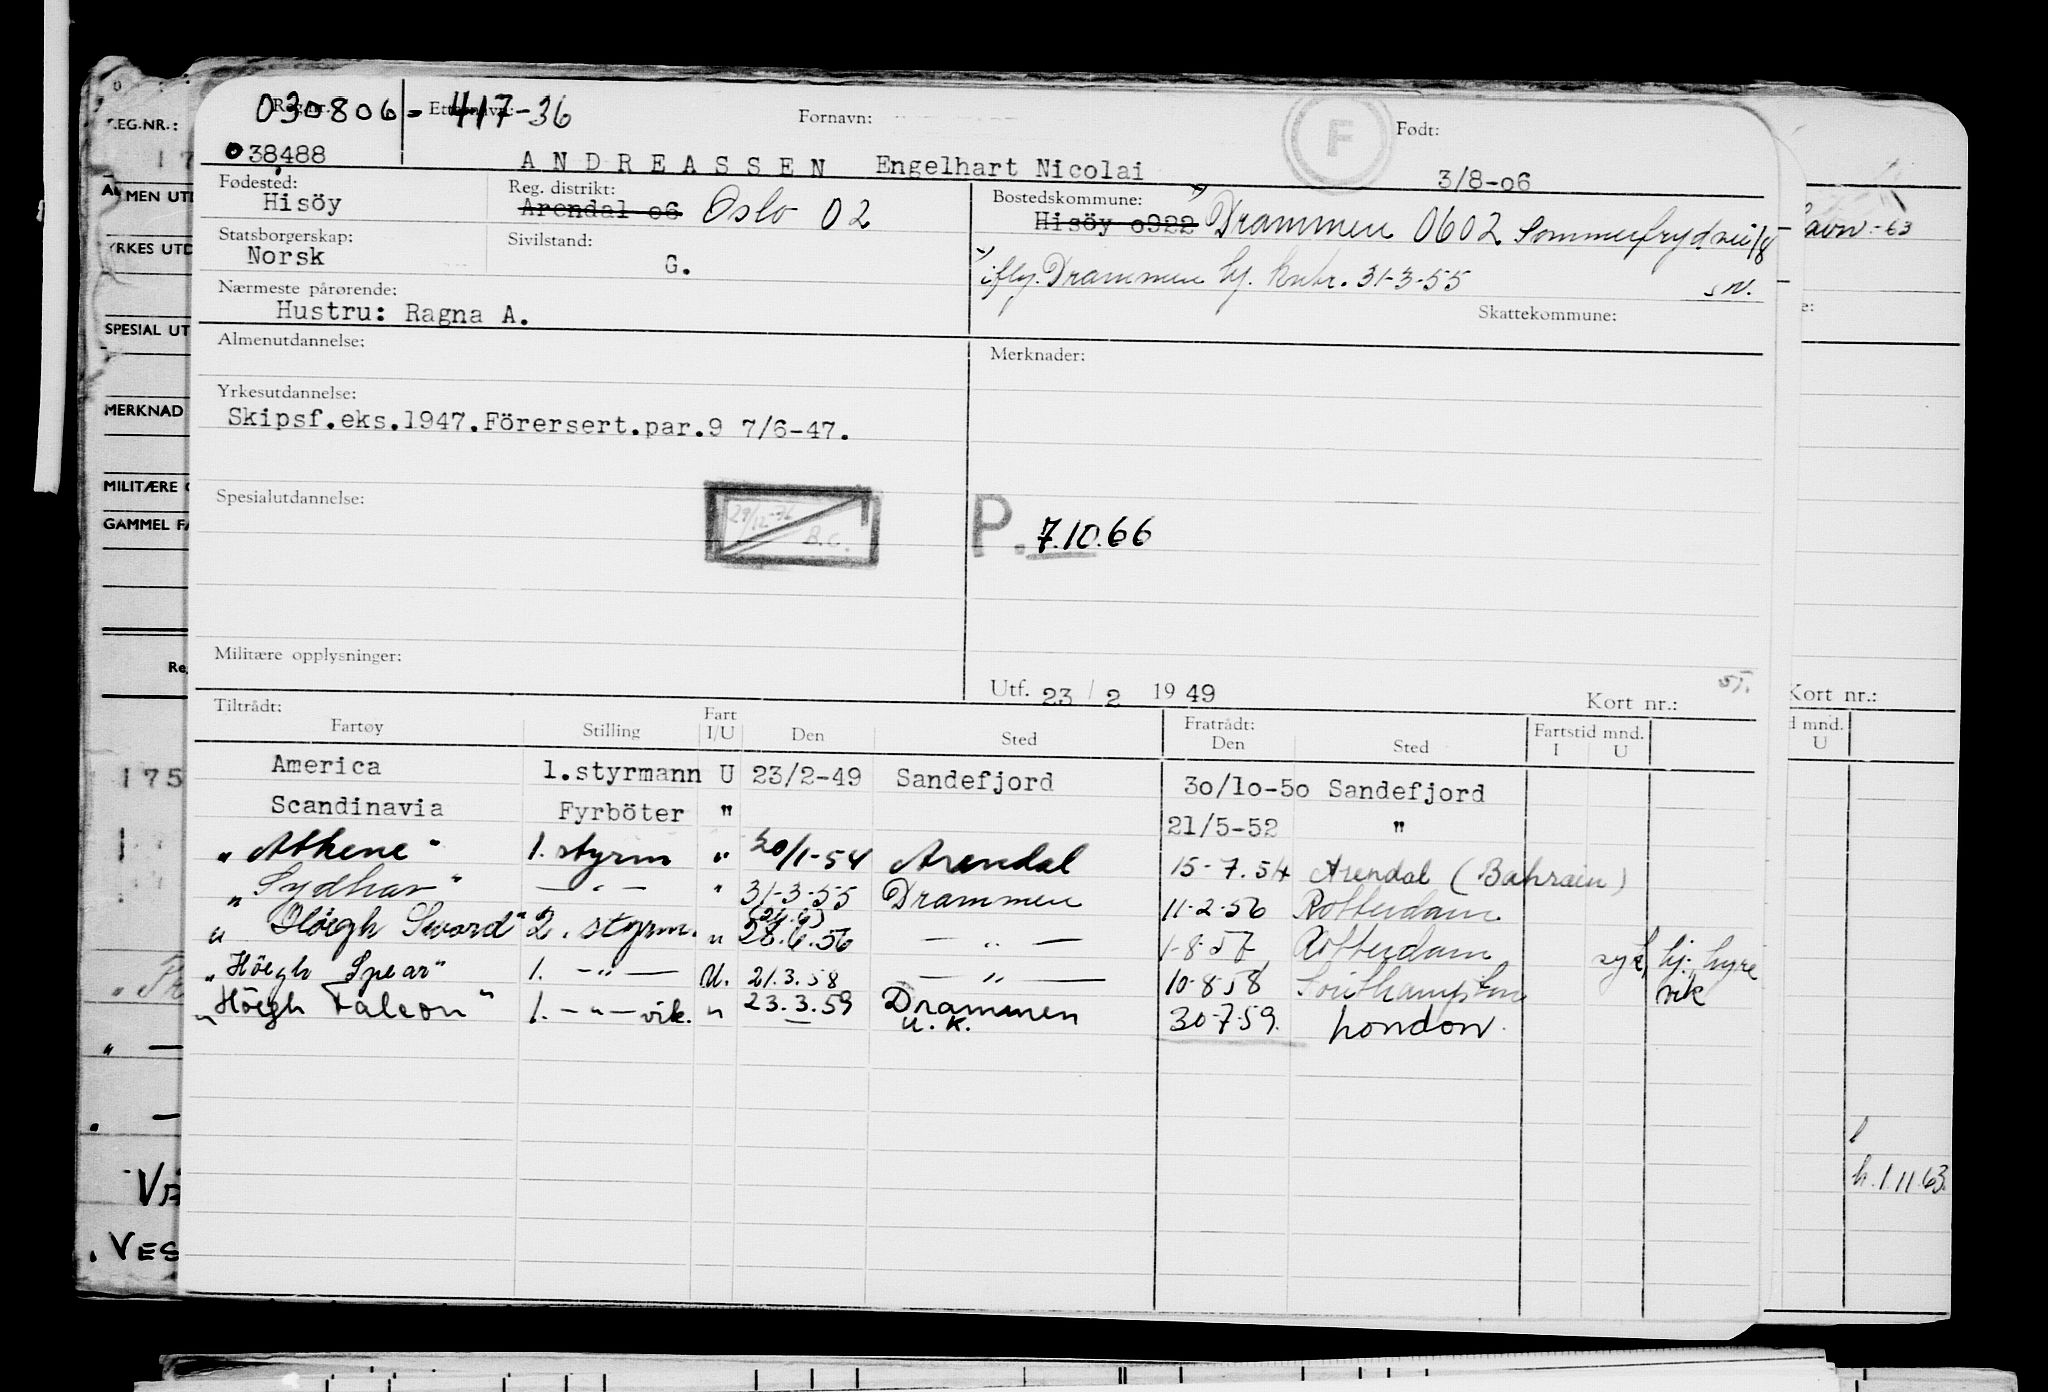 030806 - 417-36
Reg.nr. Etternavn: Fornavn: F Født:
038488 ANDREASSEN Engelhart Nicolai 3/8-06
Fødested: Reg. distrikt: Bostedskommune:
Hisöy Arendal 06 Oslo 02 Hisöy 0922 Drammen 0602 Sommerfrydvei
Statsborgerskap: Sivilstand:
Norsk G. Drammen hj. 31-3-55
Nærmeste pårørende: Skattekommune:
Hustru: Ragna A.
Almenutdannelse: Merknader:
Yrkesutdannelse:
Skipsf.eks.1947.Förersert.par.9 7/6-47.
Spesialutdannelse: P. 7.10.66
B.C.
Militære opplysninger:
Utf. 23 / 2 1949 Kort nr.:
Tiltrådt: Fart Fratrådt: Fartstid mnd.
Fartøy Stilling I/U Den Sted Den Sted I U
America 1.styrmann U 23/2-49 Sandefjord 30/10-50 Sandefjord
Scandinavia Fyrböter " 21/5-52 "
"Athene" 1. styrm " 20/1-54 Arendal 15-7.54 Arendal (Bahrain)
"Sydhav" — " — " 31-3-55 Drammen 11-2-56 Rotterdam
"Höegh Sword" 2. styrm. " 28.6.56 — " — 1-8-57 Rotterdam syk, hj. hyre
"Höegh Spear" 1. — " — U. 21.3.58 — " — 10-8-58 Southampton vik
"Höegh Falcon" 1. — " — vik. " 23.3.59 Drammen 30-7-59. London.
U.K.
REG.NR.:
17
YRKES UTD
SPESIAL UT
MERKNAD
MILITÆRE
GAMMEL
175
VES
Kort nr.:
mnd.
U
h. 1 11.63.